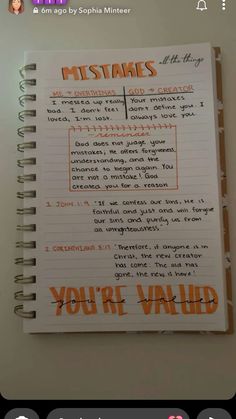 6m ago by Sophia Minteer
MISTAKES all the things
ME → OVERTHINKS
GOD → CREATOR
I messed up really
bad. I don't feel
loved, I'm lost.
Your mistakes
don't define you. I
always love you.
reminder
God does not judge your
mistakes; he offers forgiveness,
understanding, and the
chance to begin again. You
are not a mistake! God
created you for a reason
1 JOHN 1:9 "If we confess our sins, He is
faithful and just and will forgive
our sins and purify us from
all unrighteousness"
2 CORINTHIANS 5:17 "Therefore, if anyone is in
Christ, the new creation
has come: The old has
gone, the new is here!
YOU'RE VALUED
you're valued